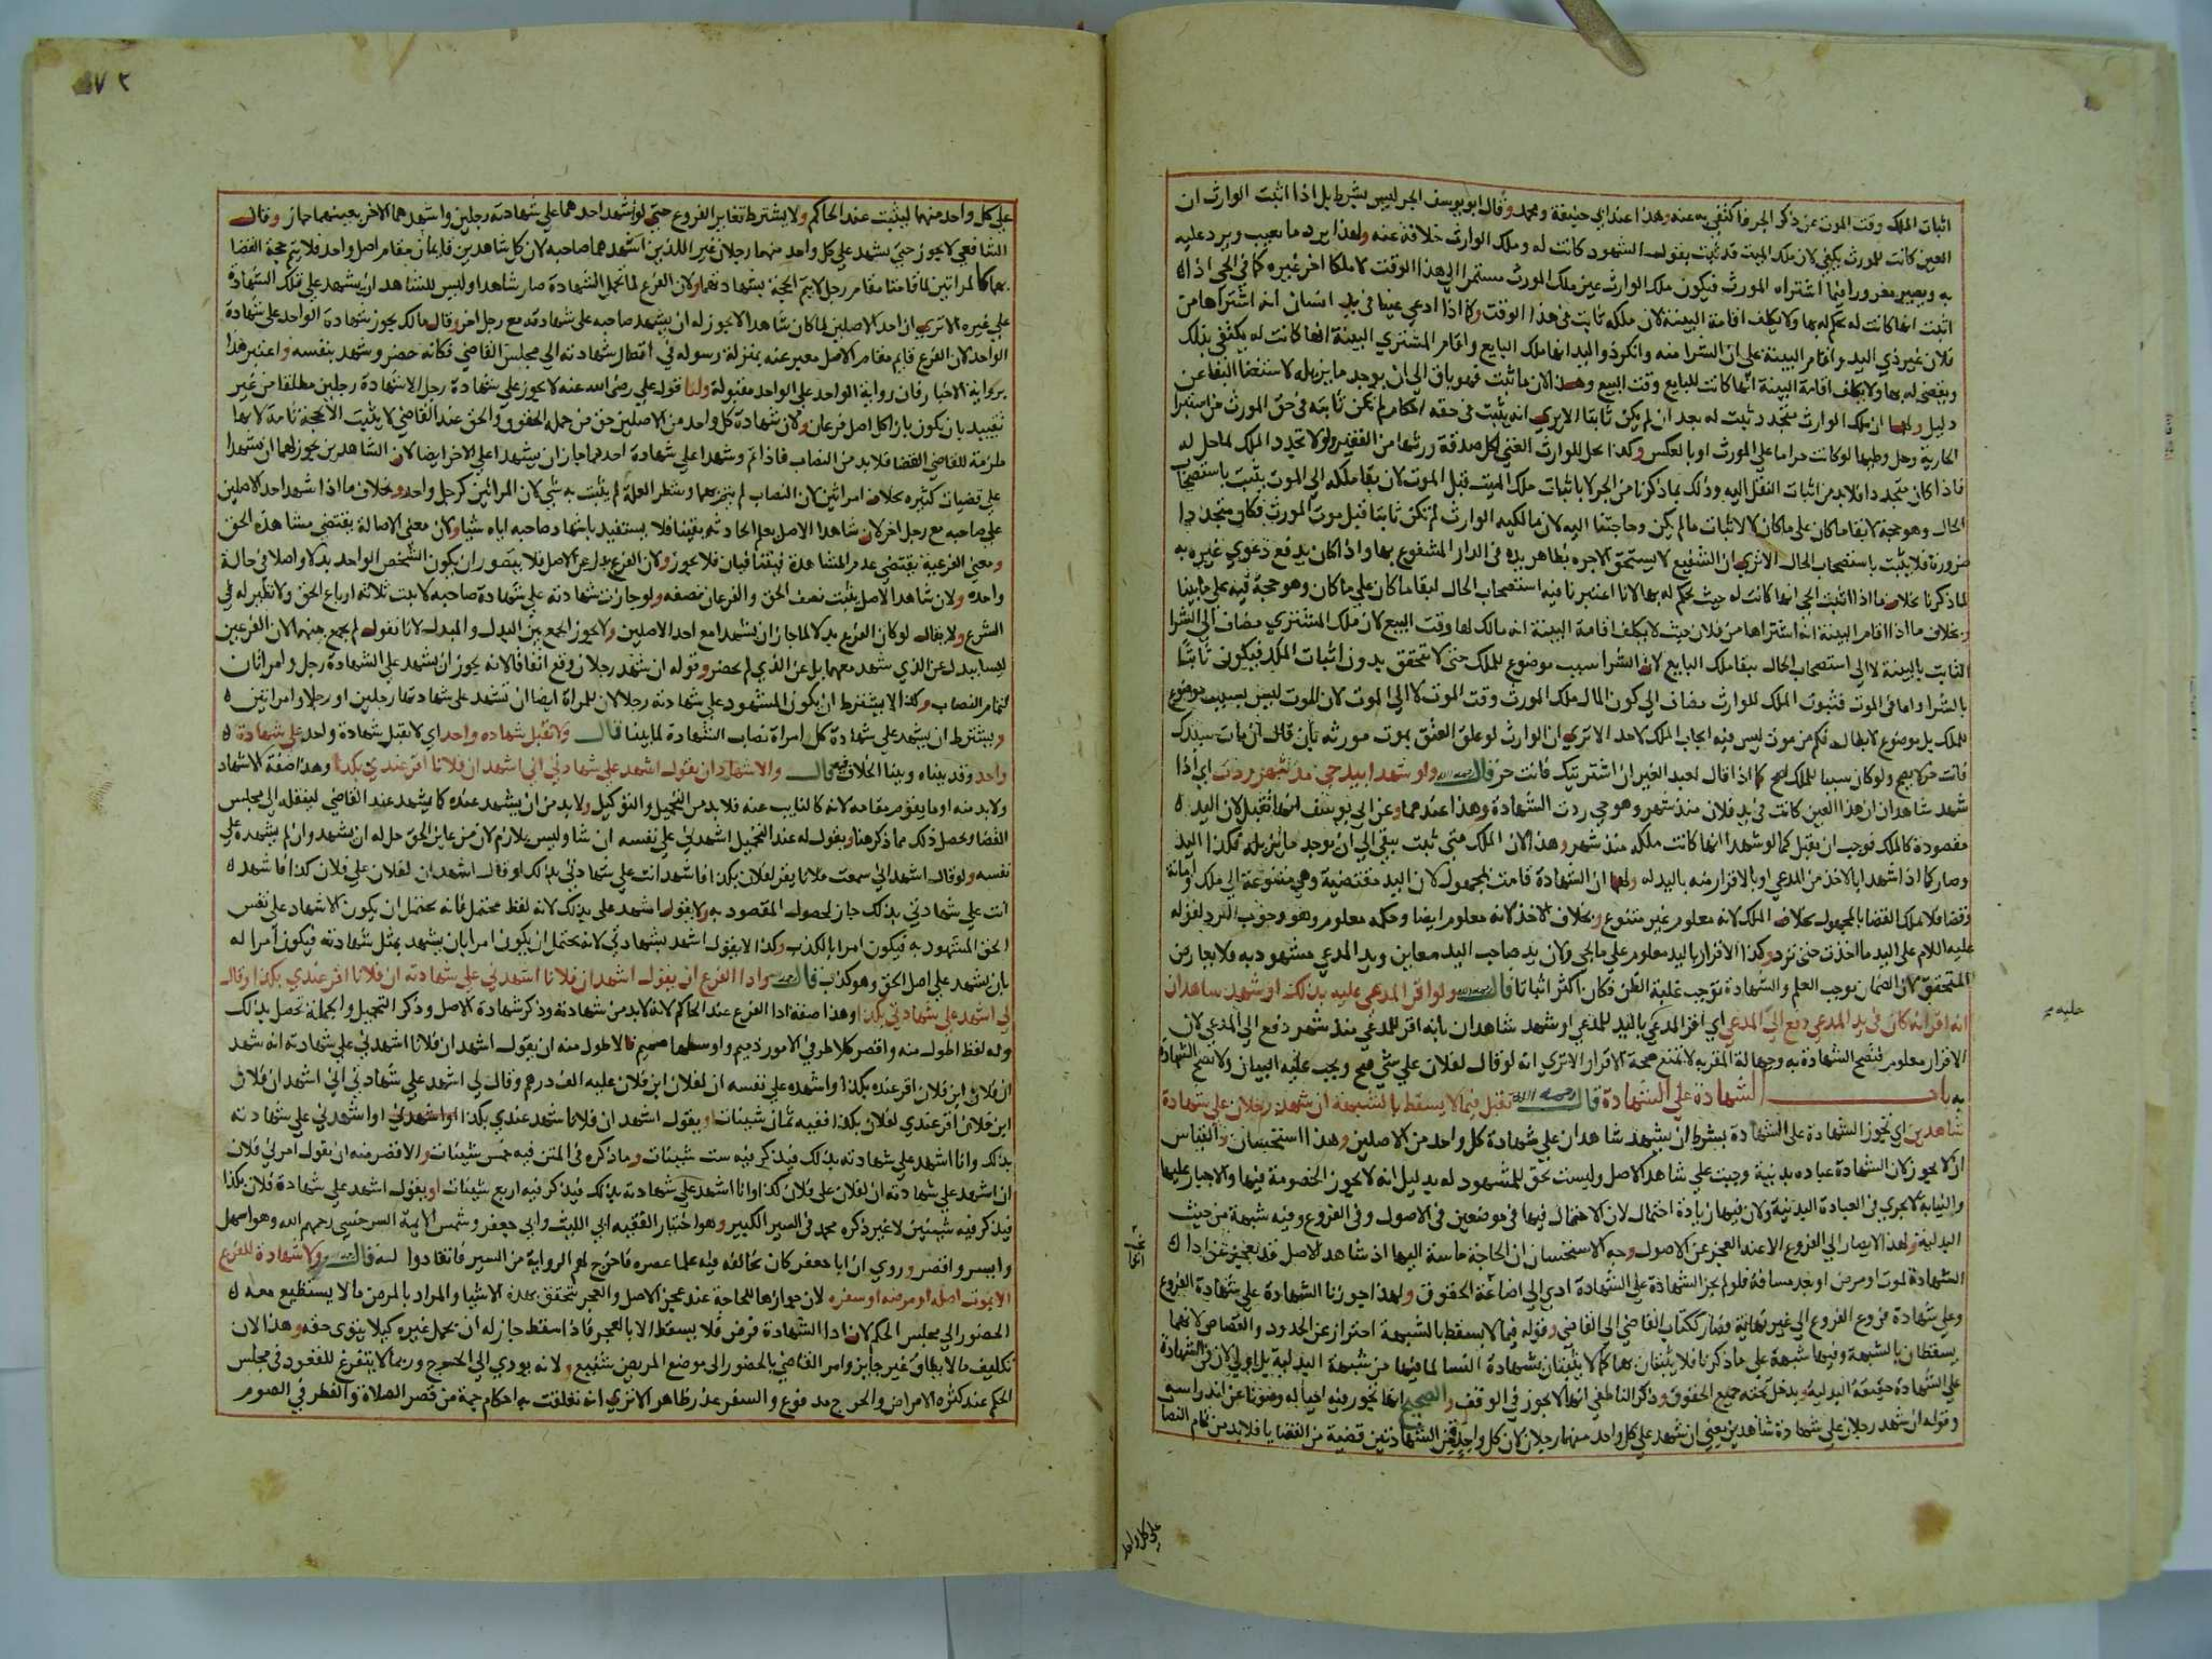 اثبات الملك وقت الموت عن ذكر الجر فاكتفي به عنه وهذا عند ابي حنيفة ومحمد وقال ابو يوسف الجر ليس بشرط بل اذا اثبت الوارث ان
العين كانت للمورث يكفي لان ملك الميت قد ثبت بقول الشهود كانت له وملك الوارث خلافة عنه ولهذا يرد ما بعيب ويرد عليه
به ويصير مغرورا فيما اشتراه المورث فيكون ملك الوارث عين ملك المورث مستمرا الي هذا الوقت لا ملكا اخر غيره كما في الحي اذا
اثبت انها كانت له يحكم له بها ولا يكلف اقامة البينة لان ملكه ثابت في هذا الوقت وكما اذا ادعي عينا في يد انسان انه اشتراها من
فلان غير ذي اليد واقام البينة علي ان الشرا منه وانكر ذو اليد انها ملك البايع واقام المشتري البينة انها كانت له يكتفي بذلك
ويقضي له بها ولا يكلف اقامة البينة انها كانت للبايع وقت البيع وهذا لان ما ثبت فهو باق الي ان يوجد ما يزيله لاستغنا البقا عن
دليل ولهما ان ملك الوارث متجدد ثبت له بعد ان لم يكن ثابتا الا يري انه يثبت في حقه احكام لم تكن ثابته في حق المورث من استبرا
الجارية وحل وطيها لو كانت حراما علي المورث او بالعكس وكذا يحل للوارث الغني اكل صدقة ورثها من الفقير ولولا تجدد الملك لما حل له
فاذا كان متجددا فلا بد من اثبات النقل اليه وذلك بما ذكرنا من الجر لا باثبات ملك الميت قبل الموت لان بقا ملكه الي الموت يثبت باستصحاب
الحال وهو حجة لابقا ما كان علي ما كان لا لاثبات ما لم يكن وحاجتنا اليه لان مالكيه الوارث لم تكن ثابتا قبل موت المورث فكان متجددا
ضرورة فلا يثبت باستصحاب الحال الا تري ان الشفيع لا يستحق الاجره بظاهر يده في الدار المشفوع بها واذا كان يدفع دعوي غيره به
لما ذكرنا بخلاف ما اذا اثبت الحي انها كانت له حيث يحكم له بها لانا اعتبرنا فيه استصحاب الحال لبقا ما كان علي ما كان وهو حجة فيه علي ما بينا
وبخلاف ما اذا اقام البينة انه اشتراها من فلان حيث لا يكلف اقامة البينة انه مالك لها وقت البيع لان ملك المشتري مضاف الي الشرا
الثابت بالبينة لا الي استصحاب الحال ببقا ملك البايع لان الشرا سبب موضوع للملك حتي لا تتحقق بدون اثبات الملك فيكون ثابتا
بالشرا واما في الموت فثبوت الملك للوارث مضاف الي كون المال ملك المورث وقت الموت لا الي الموت لان الموت ليس بسبب موضوع
للملك بل موضوع لابطاله فكم من موت ليس فيه ايجاب الملك لاحد الا تري ان الوارث لو علق العتق بموت مورثه بان قال ان مات سيدك
فانت حر لا يصح ولو كان سببا للملك لصح كما اذا قال لعبد الغير ان اشتريتك فانت حر قال رحمه الله ولو شهدا بيد حي مذ شهر ردت اي اذا
شهد شاهدان ان هذا العين كانت في يد فلان منذ شهر وهو حي ردت الشهادة وهذا عندهما وعن ابي يوسف انها تقبل لان اليد
مقصودة كالملك فوجب ان يقبل كما لو شهدا انها كانت ملكه منذ شهر وهذا لان الملك متي ثبت يبقي الي ان يوجد ما يزيله فكذا اليد
وصار كما اذا شهدا بالاخذ من المدعي او بالاقرار منه باليد له ولهما ان الشهادة قامت بمجهول لان اليد مقتضية وهي متنوعة الي ملك وامانة
فقضا فلا ملك القضا بالمجهول بخلاف الملك لانه معلوم غير متنوع وبخلاف الاخذ لانه معلوم ايضا وحكمه معلوم وهو وجوب الرد لقوله
عليه السلام علي اليد ما اخذت حتي ترد وكذا الاقرار باليد معلوم علي ما يجي ولان يد صاحب اليد معاين ويد المدعي مشهود به فلا يعارض
المتحقق لان العيان يوجب العلم والشهادة توجب غلبة الظن فكان اكثر اثباتا قال رحمه الله ولو اقر المدعي عليه بذلك او شهد شاهدان
انه اقر انه كان في يد المدعي دفع الي المدعي اي اقر المدعي باليد للمدعي او شهد شاهدان بانه اقر للمدعي منذ شهر دفع الي المدعي لان
الاقرار معلوم فتصح الشهادة به وجهالة المقر به لا تمنع صحة الاقرار الا تري انه لو قال لفلان علي شي صح ويجب عليه البيان ولا تصح الشهادة
به باب الشهادة علي الشهادة قال رحمه الله تقبل فيما لا يسقط بالشبهة ان شهد رجلان علي شهادة
شاهدين اي تجوز الشهادة علي الشهادة بشرط ان يشهد شاهدان علي شهادة كل واحد من الاصلين وهذا استحسان والقياس
ان لا يجوز لان الشهادة عباده بدنية وجبت علي شاهد الاصل وليست بحق للمشهود له بدليل انه لا يجوز الخصومة فيها والاجبار عليها
والنيابة لا تجري في العبادة البدنية ولان فيها زيادة احتمال لان الاحتمال فيها في موضعين في الاصول وفي الفروع وفيه شبهة من حيث
البدلية ولهذا لا يصار الي الفروع الا عند العجز عن الاصول وجه الاستحسان ان الحاجة ماسة اليها اذ شاهد الاصل قد يعجز عن ادا
الشهادة لموت او مرض او بعد مسافة فلو لم يجز الشهادة علي الشهادة ادي الي اضاعة الحقوق ولهذا جوزنا الشهادة علي شهادة الفروع
وعلي شهادة فروع الفروع الي غير نهاية فصار ككتاب القاضي الي القاضي وقوله فيما لا يسقط بالشبهة احتراز عن الحدود والقصاص لانهما
يسقطان بالشبهة وفيها شبهة علي ما ذكرنا فلا يثبتان بها كما لا يثبتان بشهادة النسا لما فيها من شبهة البدلية بل اولي لان في الشهادة
علي الشهادة حقيقة البدلية ويدخل تحته جميع الحقوق وذكر الناطفي انها لا يجوز في الوقف والصحيح انها تجوز فيه احيا له وصونا عن اندراسه
وقوله ان شهد رجلان علي شهادة شاهدين يعني ان شهد علي كل واحد منهما رجلان لان كل واحد من الشهادتين قضية من القضايا فلا بد من تمام النصاب
علي كل واحد
٧٢
علي كل واحد منهما ليثبت عند الحاكم ولا يشترط تغاير الفروع حتي لو شهد احدهما علي شهادته رجلين واشهدهما الاخر بعينهما جاز وقال
الشافعي لا يجوز حتي يشهد علي كل واحد منهما رجلان غير اللذين اشهدهما صاحبه لان كل شاهدين قايمان مقام اصل واحد فلا يتم حجة القضا
بهما كالمراتين لما قامتا مقام رجل لا يتم الحجة بشهادتهما ولان الفرع لما تحمل الشهادة صار شاهدا وليس للشاهد ان يشهد علي تلك الشهادة
علي غيره الا تري ان احد الاصلين لما كان شاهدا لا يجوز له ان يشهد صاحبه علي شهادته مع رجل اخر وقال مالك يجوز شهادة الواحد علي شهادة
الواحد لان الفرع قايم مقام الاصل معبر عنه بمنزلة رسوله في ايصال شهادته الي مجلس القاضي فكانه حضر وشهد بنفسه واعتبر هذا
برواية الاخبار فان رواية الواحد علي الواحد مقبولة ولنا قول علي رضي الله عنه لا يجوز علي شهادة رجل الا شهادة رجلين مطلقا من غير
تقييد بان يكون بازا كل اصل فرعان ولان شهادة كل واحد من الاصلين حق من جملة الحقوق والحق عند القاضي لا يثبت الا بحجة تامة لانها
ملزمة للقاضي القضا فلا بد من النصاب فاذا تم وشهدا علي شهادة احدهما جاز ان يشهدا علي الاخر ايضا لان الشاهدين يجوز لهما ان يشهدا
علي قضيات كثيره بخلاف امراتين لان النصاب لم يتم بهما وشطر العلة لم يثبت به شي لان المراتين كرجل واحد وبخلاف ما اذا شهد احد الاصلين
علي صاحبه مع رجل اخر لان شاهد الاصل يعلم الحادثه يقينا فلا يستفيد باشهاد صاحبه اياه شيا ولان معني الاصالة يقتضي مشاهدة الحق
ومعني الفرعية يقتضي عدم المشاهدة فيتنافيان فلا يجوز ولان الفرع بدل عن الاصل فلا يتصور ان يكون الشخص الواحد بدلا واصلا في حالة
واحده ولان شاهد الاصل يثبت نصف الحق والفرعان نصفه ولو جازت شهادته علي شهادة صاحبه لاثبت ثلاثة ارباع الحق ولا نظير له في
الشرع ولا يقال لو كان الفرع بدلا لما جاز ان يشهد مع احد الاصلين ولا يجوز الجمع بين البدل والمبدل لانا نقول لم يجمع بينهما لان الفرعين
ليسا ببدل عن الذي شهد معهما بل عن الذي لم يحضر وقوله ان شهد رجلان وقع اتفاقا لانه يجوز ان يشهد علي الشهادة رجل وامراتان
لتمام النصاب وكذا لا يشترط ان يكون المشهود علي شهادته رجلا لان للمراة ايضا ان تشهد علي شهادتها رجلين او رجلا وامراتين
ويشترط ان يشهد علي شهادة كل امراة نصاب الشهادة لما بينا قال ولا تقبل شهاده واحد اي لا تقبل شهادة واحد علي شهادة
واحد وقد بيناه وبينا الخلاف فيه قال والاشهاد ان يقول اشهد علي شهادتي اني اشهد ان فلانا اقر عندي بكذا وهذا صفة الاشهاد
ولا بد منه او ما يقوم مقامه لانه كالنايب عنه فلا بد من التحميل والتوكيل ولا بد من ان يشهد عنده كما يشهد عند القاضي لينقله الي مجلس
القضا وحصل ذلك مما ذكر هنا ويقول له عند التحميل اشهدني علي نفسه ان شا وليس بلازم لان من عاين الحق حل له ان يشهد وان لم يشهده علي
نفسه ولو قال اشهد اني سمعت فلانا يقر لفلان بكذا فاشهد انت علي شهادتي بذلك او قال اشهد ان لفلان علي فلان كذا فاشهد
انت علي شهادتي بذلك جاز لحصول المقصود به ولا يقول اشهد علي بذلك لانه لفظ محتمل فانه يحتمل ان يكون الاشهاد علي نفس
الحق المشهود به فيكون امرا بالكذب وكذا لا يقول اشهد بشهادتي لانه يحتمل ان يكون امرا بان يشهد بمثل شهادته فيكون امرا له
بان يشهد علي اصل الحق وهو كذب قال رحمه الله وادا الفرع ان يقول اشهد ان فلانا اشهدني علي شهادته ان فلانا اقر عندي بكذا وقال
لي اشهد علي شهادتي بكذا وهذا صفة ادا الفرع عند الحاكم لانه لا بد من شهادته وذكر شهادة الاصل وذكر التحميل والجملة تحصل بذلك
وله لفظ اطول منه واقصر كلا طرفي الامور ذميم واوسطها صميم فالاطول منه ان يقول اشهد ان فلانا اشهدني علي شهادته انه شهد
ان فلان ابن فلان اقر عنده بكذا واشهده علي نفسه ان لفلان ابن فلان عليه الف درهم وقال لي اشهد علي شهادتي اني اشهد ان فلان
ابن فلان اقر عندي لفلان بكذا ففيه ثمان شينات او يقول اشهد ان فلانا شهد عندي بكذا او اشهدني او اشهدني علي شهادته
بذلك وانا اشهد علي شهادته بذلك فيذكر فيه ست شينات وما ذكره في المتن فيه خمس شينات والاقصر منه ان يقول امرني فلان
ان اشهد علي شهادته ان لفلان علي فلان كذا وانا اشهد علي شهادته بذلك فيذكر فيه اربع شينات او يقول اشهد علي شهادة فلان بكذا
فيذكر فيه شينين لا غير ذكره محمد في السير الكبير وهو اختيار الفقيه ابي الليث وابي جعفر وشمس الايمة السرخسي رحمهم الله وهو اسهل
وايسر واقصر وروي ان ابا جعفر كان يخالفه فيه علما عصره فاخرج لهم الرواية من السير فانقادوا له قال رحمه الله ولا شهادة للفرع
الا بموت اصله او مرضه او سفره لان جوازها للحاجة عند عجز الاصل والعجز يتحقق بهذه الاشيا والمراد بالمرض ما لا يستطيع معه
الحضور الي مجلس الحكم لان ادا الشهادة فرض فلا يسقط الا بالعجز فاذا سقط جاز له ان يحمل غيره كيلا يتوي حقه وهذا لان
تكليف ما لا يطاق غير جايز وامر القاضي بالحضور الي موضع المريض شنيع ولانه يودي الي الحرج وربما لا يتفرغ للقعود في مجلس
الحكم عند كثرة الامراض والحرج مدفوع والسفر عذر ظاهر الا تري انه تعلقت به احكام جمة من قصر الصلاة والفطر في الصوم